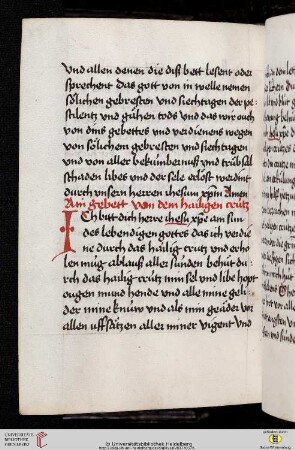 Vnd allen denen die diß bett lesent oder
sprechent das gott von in welle nemen
sölichen gebresten vnd siechtagen der pe-
stilentz vnd gähen tods vnd das wir ouch
von dins gebettes vnd verdienens wegen
von sölichen gebresten vnd siechtagen
vnd von aller bekümbernuß vnd trübsal
schaden libes vnd der sele erlöst werdint
durch vnsern herren ihesum xpm Amen
Ain gebett von dem hailigen crütz
Ich bitt dich herre ihesu xpe ain sun
des lebendigen gottes das ich verdie
ne durch das hailig crütz vnd erho
len müg ablauß aller sünden behüt du
rch das hailig crütz min sel vnd libe hopt
ougen mund hende vnd alle mine geli
der mine knüw vnd als min geäder vor
allen vffsätzen aller miner vigent vnd
UNIVERSITÄTS-
BIBLIOTHEK
HEIDELBERG
© Universitätsbibliothek Heidelberg